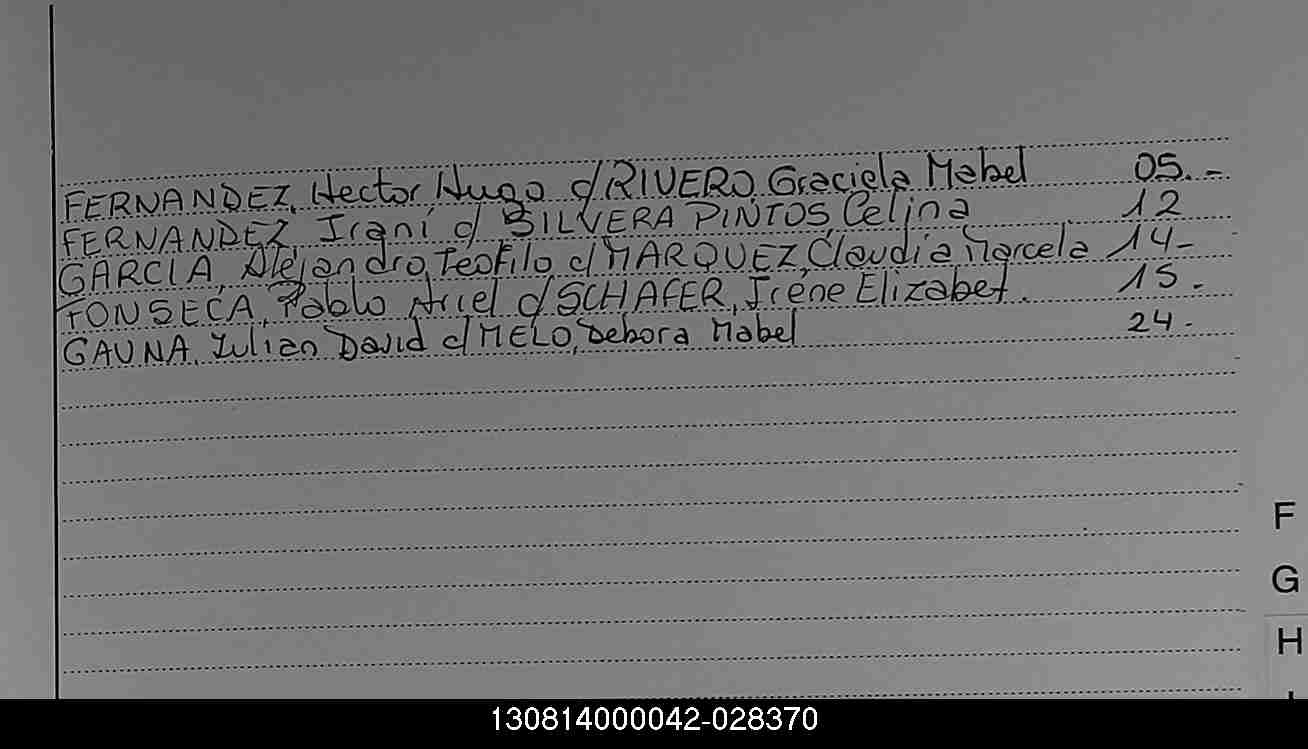 FERNANDEZ, Hector Hugo c/RIVERO, Graciela Mabel 05.-
FERNANDEZ, Iraní c/ SILVERA PINTOS, Celina 12
GARCIA, Alejandro, Teofilo c/MARQUEZ, Claudia Marcela 14-
FONSECA, Pablo Ariel c/SCHAFER, Irene Elizabet. 15.
GAUNA, Iulian David c/MELO, Debora Mabel 24.
F
G
H
130814000042-028370